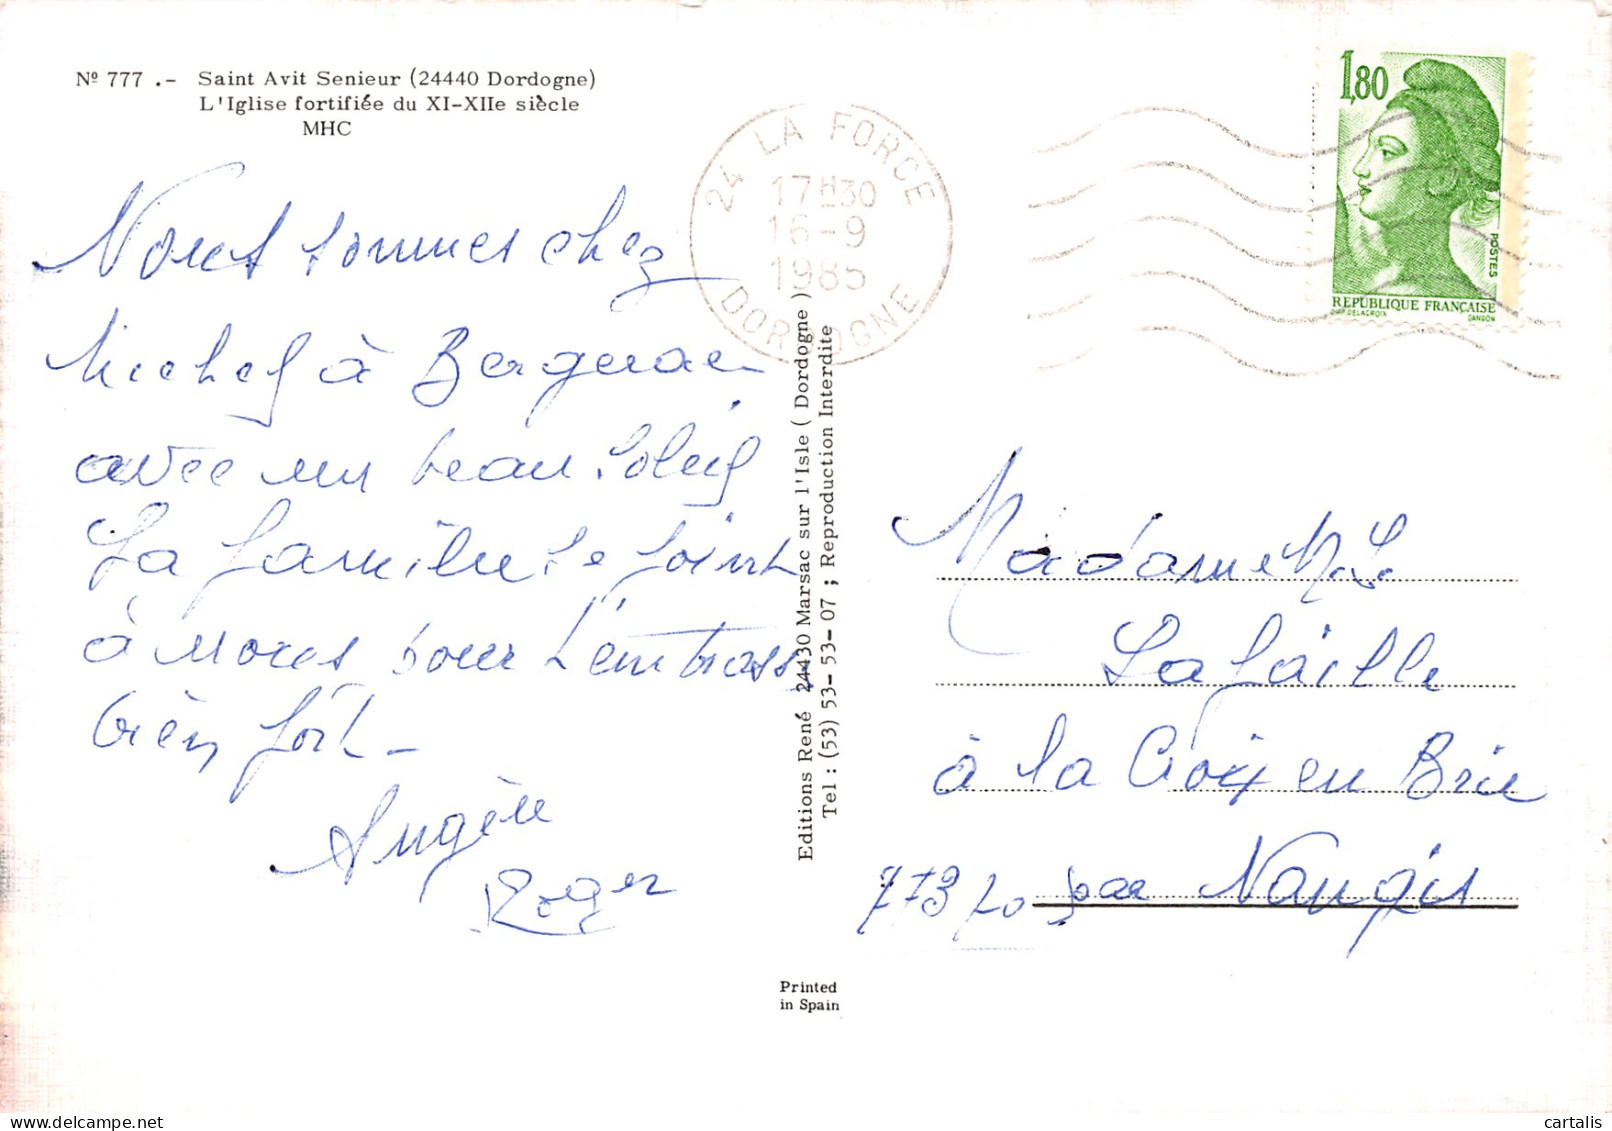 Nº 777 .- Saint Avit Senieur (24440 Dordogne)
L'Iglise fortifiée du XI-XIIe siècle
MHC
Nous sommes chez
Michel à Bergerac
avec un beau soleil
La famille se joint
à nous pour t'embrasser
bien fort -
Angèle
Roger
24 LA FORCE
17H30
16-9
1985
DORDOGNE
1,80
POSTES
REPUBLIQUE FRANÇAISE
D'AP. DELACROIX GANDON
Editions René 24430 Marsac sur l'Isle ( Dordogne )
Tel : (53) 53-53-07 ; Reproduction Interdite
Madame M.L.
Lafaille
à la Croix en Brie
77370 par Nangis
Printed
in Spain
cartalis